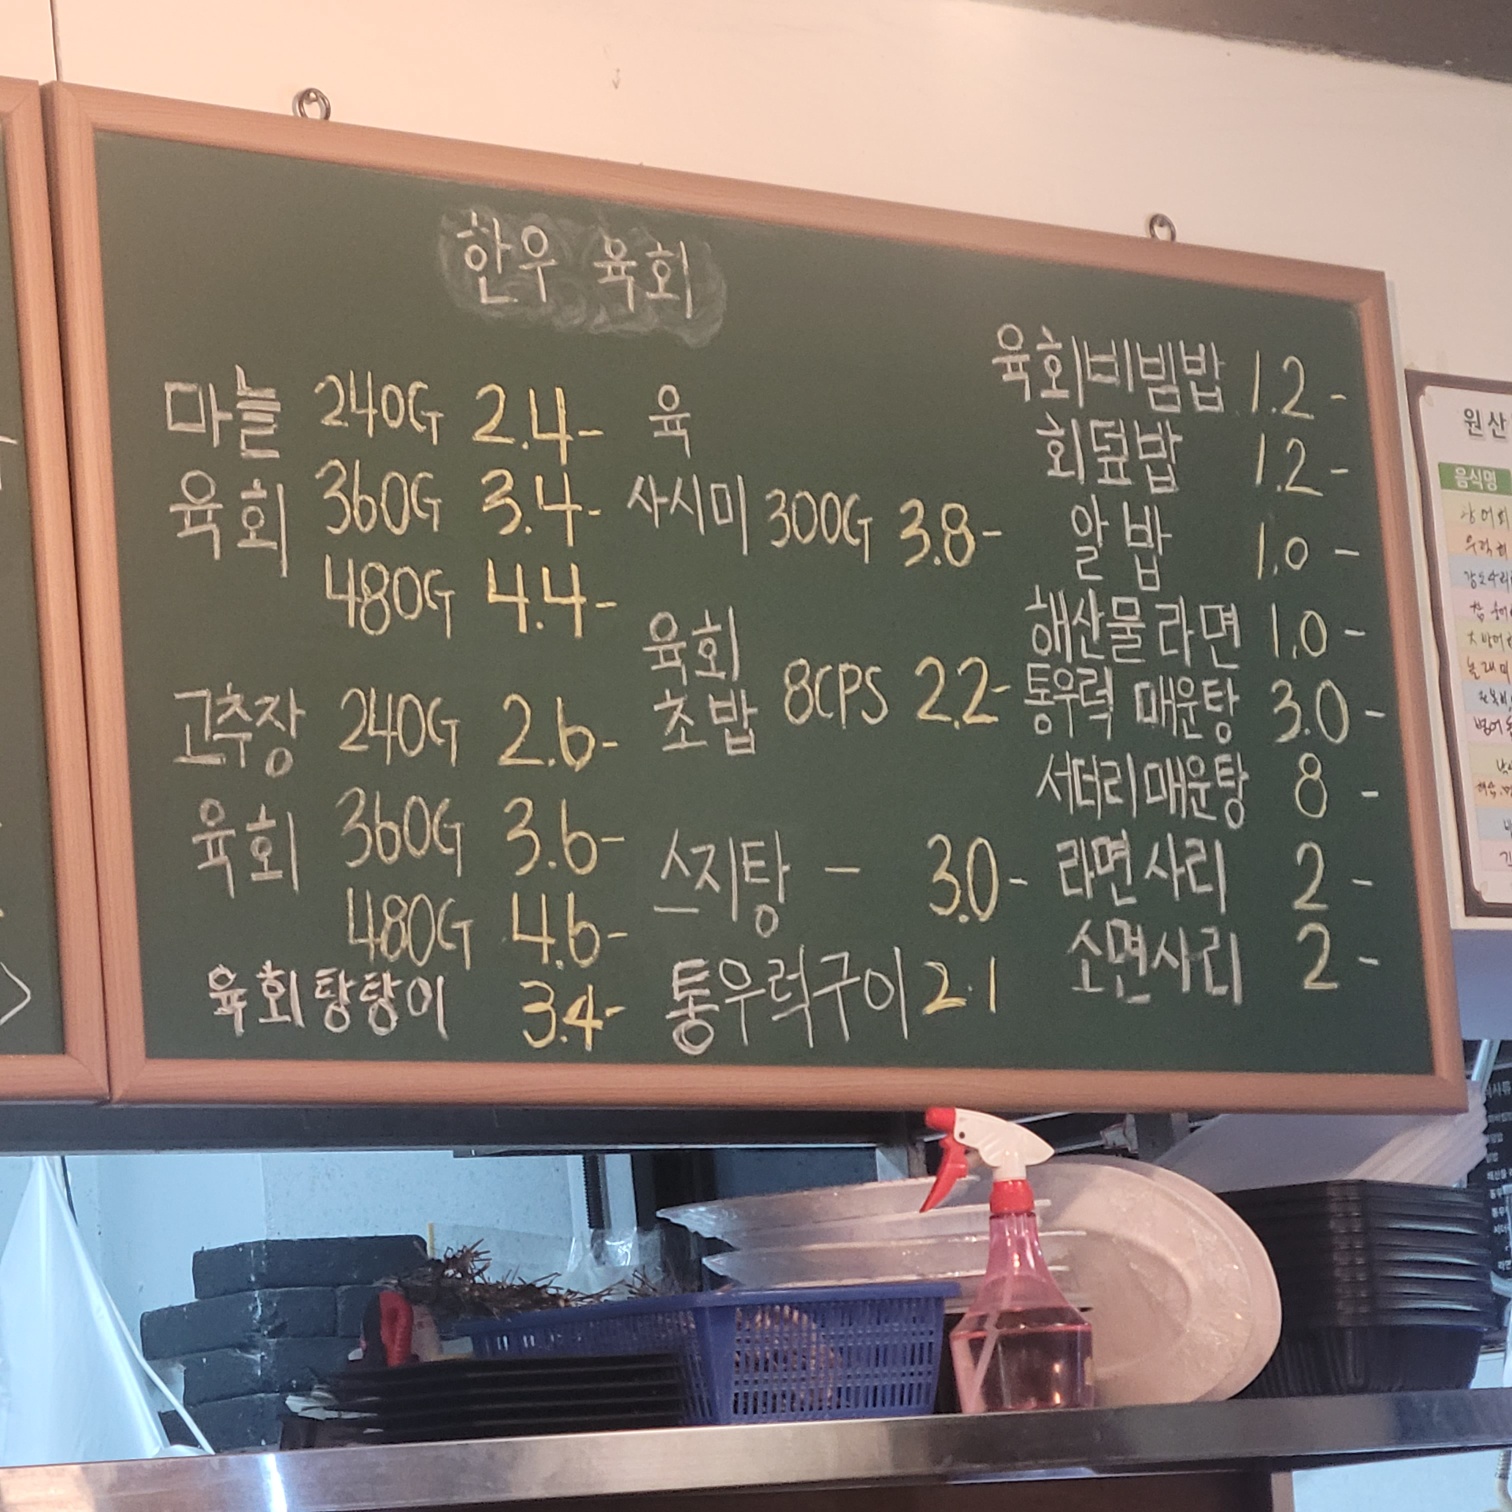 한우 육회
마늘 240G 2.4-
육회 360G 3.4-
480G 4.4-
고추장 240G 2.6-
육회 360G 3.6-
480G 4.6-
육회탕탕이 3.4-
육
사시미 300G 3.8-
육회
초밥 8CPS 2.2-
스지탕 - 3.0-
통우럭구이 2.1
육회비빔밥 1.2-
회덮밥 1.2-
알밥 1.0-
해산물라면 1.0-
통우럭 매운탕 3.0-
서더리매운탕 8-
라면사리 2-
소면사리 2-
원산
음식명